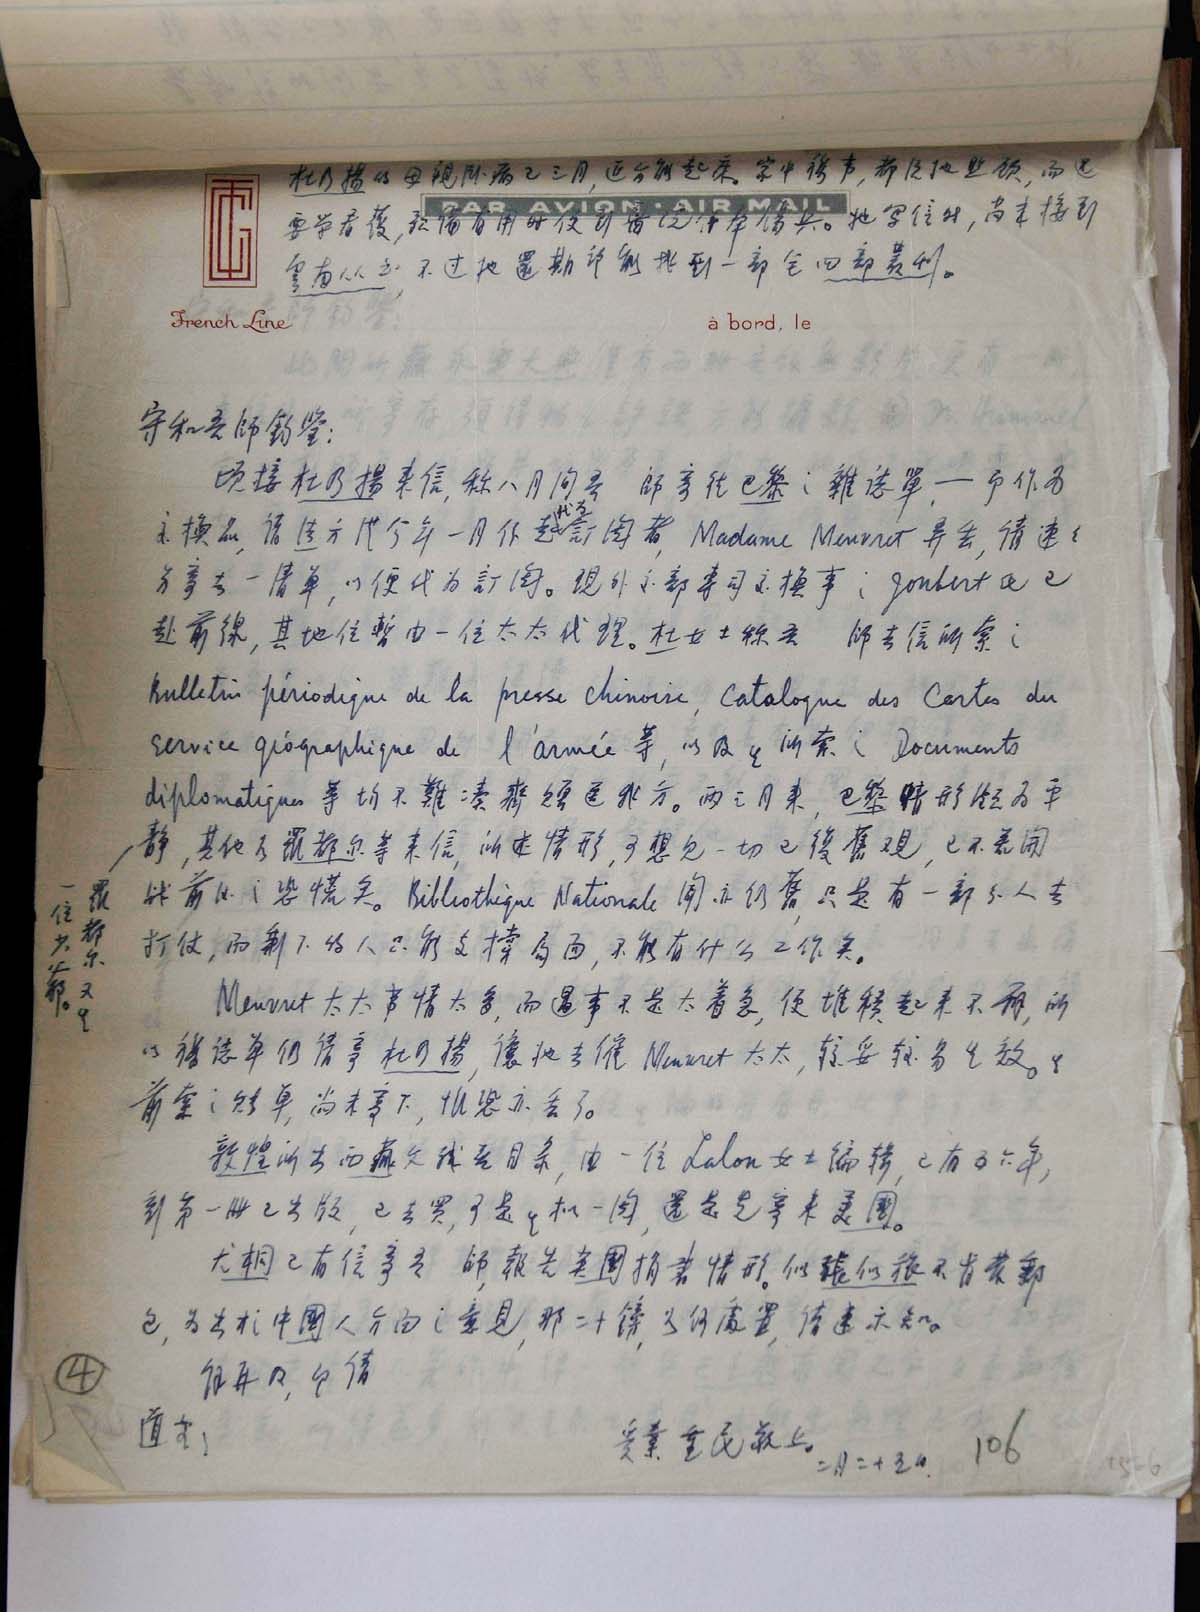 杜乃揚的母親臥病已三月,近方能起床。家中諸事,都須她照顧,而還
PAR AVION · AIR MAIL
要學看護,預備有用時役到醫院伺奉傷兵。她寫信時,尚未接到
雲南 不过她還期望能找到一部全四部叢刊。
French Line
à bord, le
守和吾師鈞鑒:
頃接杜乃揚來信,称八月间吾 師寄往巴黎之雜誌單,一可作为
交換品,請法方代今年一月作起代为訂閱者,Madame Meuvret 弄丢,請速
方寄去一清單,以便代为訂閱。現外交部專司交換事之 Joubert 已
赴前線,其地位暫由一位太太代理。杜女士称吾 師去信所索之
Bulletin périodique de la presse chinoise, Catalogue des Cartes du
service géographique de l'armée 等,以及生所索之 Documents
diplomatiques 等均不難湊齊願送我方。兩三月來,巴黎情形頗为平
靜,其他如羅都尔等來信,所述情形,可想見一切已復舊观,已不若開
战前後之恐慌矣。Bibliothèque Nationale 開亦仍舊,只是有一部分人去
打仗,而剩下的人只能支撐局面,不能有什么工作矣。
羅都尔又生
一位少爺。
Meuvret 太太事情太多,而遇事不是太着急,便堆積起來不辦,所
以雜誌单仍請寄杜乃揚,讓她去催 Meuvret 太太,較妥較易生效。生
前索之賬单,尚未寄下,恐怕亦丢了。
敦煌所出西藏文残卷目录,由一位 Lalou 女士編輯,已有五六年,
到第一冊已出版,已去買,可是生想一閱,還是先寄來美國。
尤桐已有信寄吾 師,報告英國捐書情形。似張似旅不肯裝郵
包,为出於中國人方面之意見,那二十鎊,如何處置,請速示知。
餘再及,即請
道安!
受業重民敬上。
二月二十五日
④
106